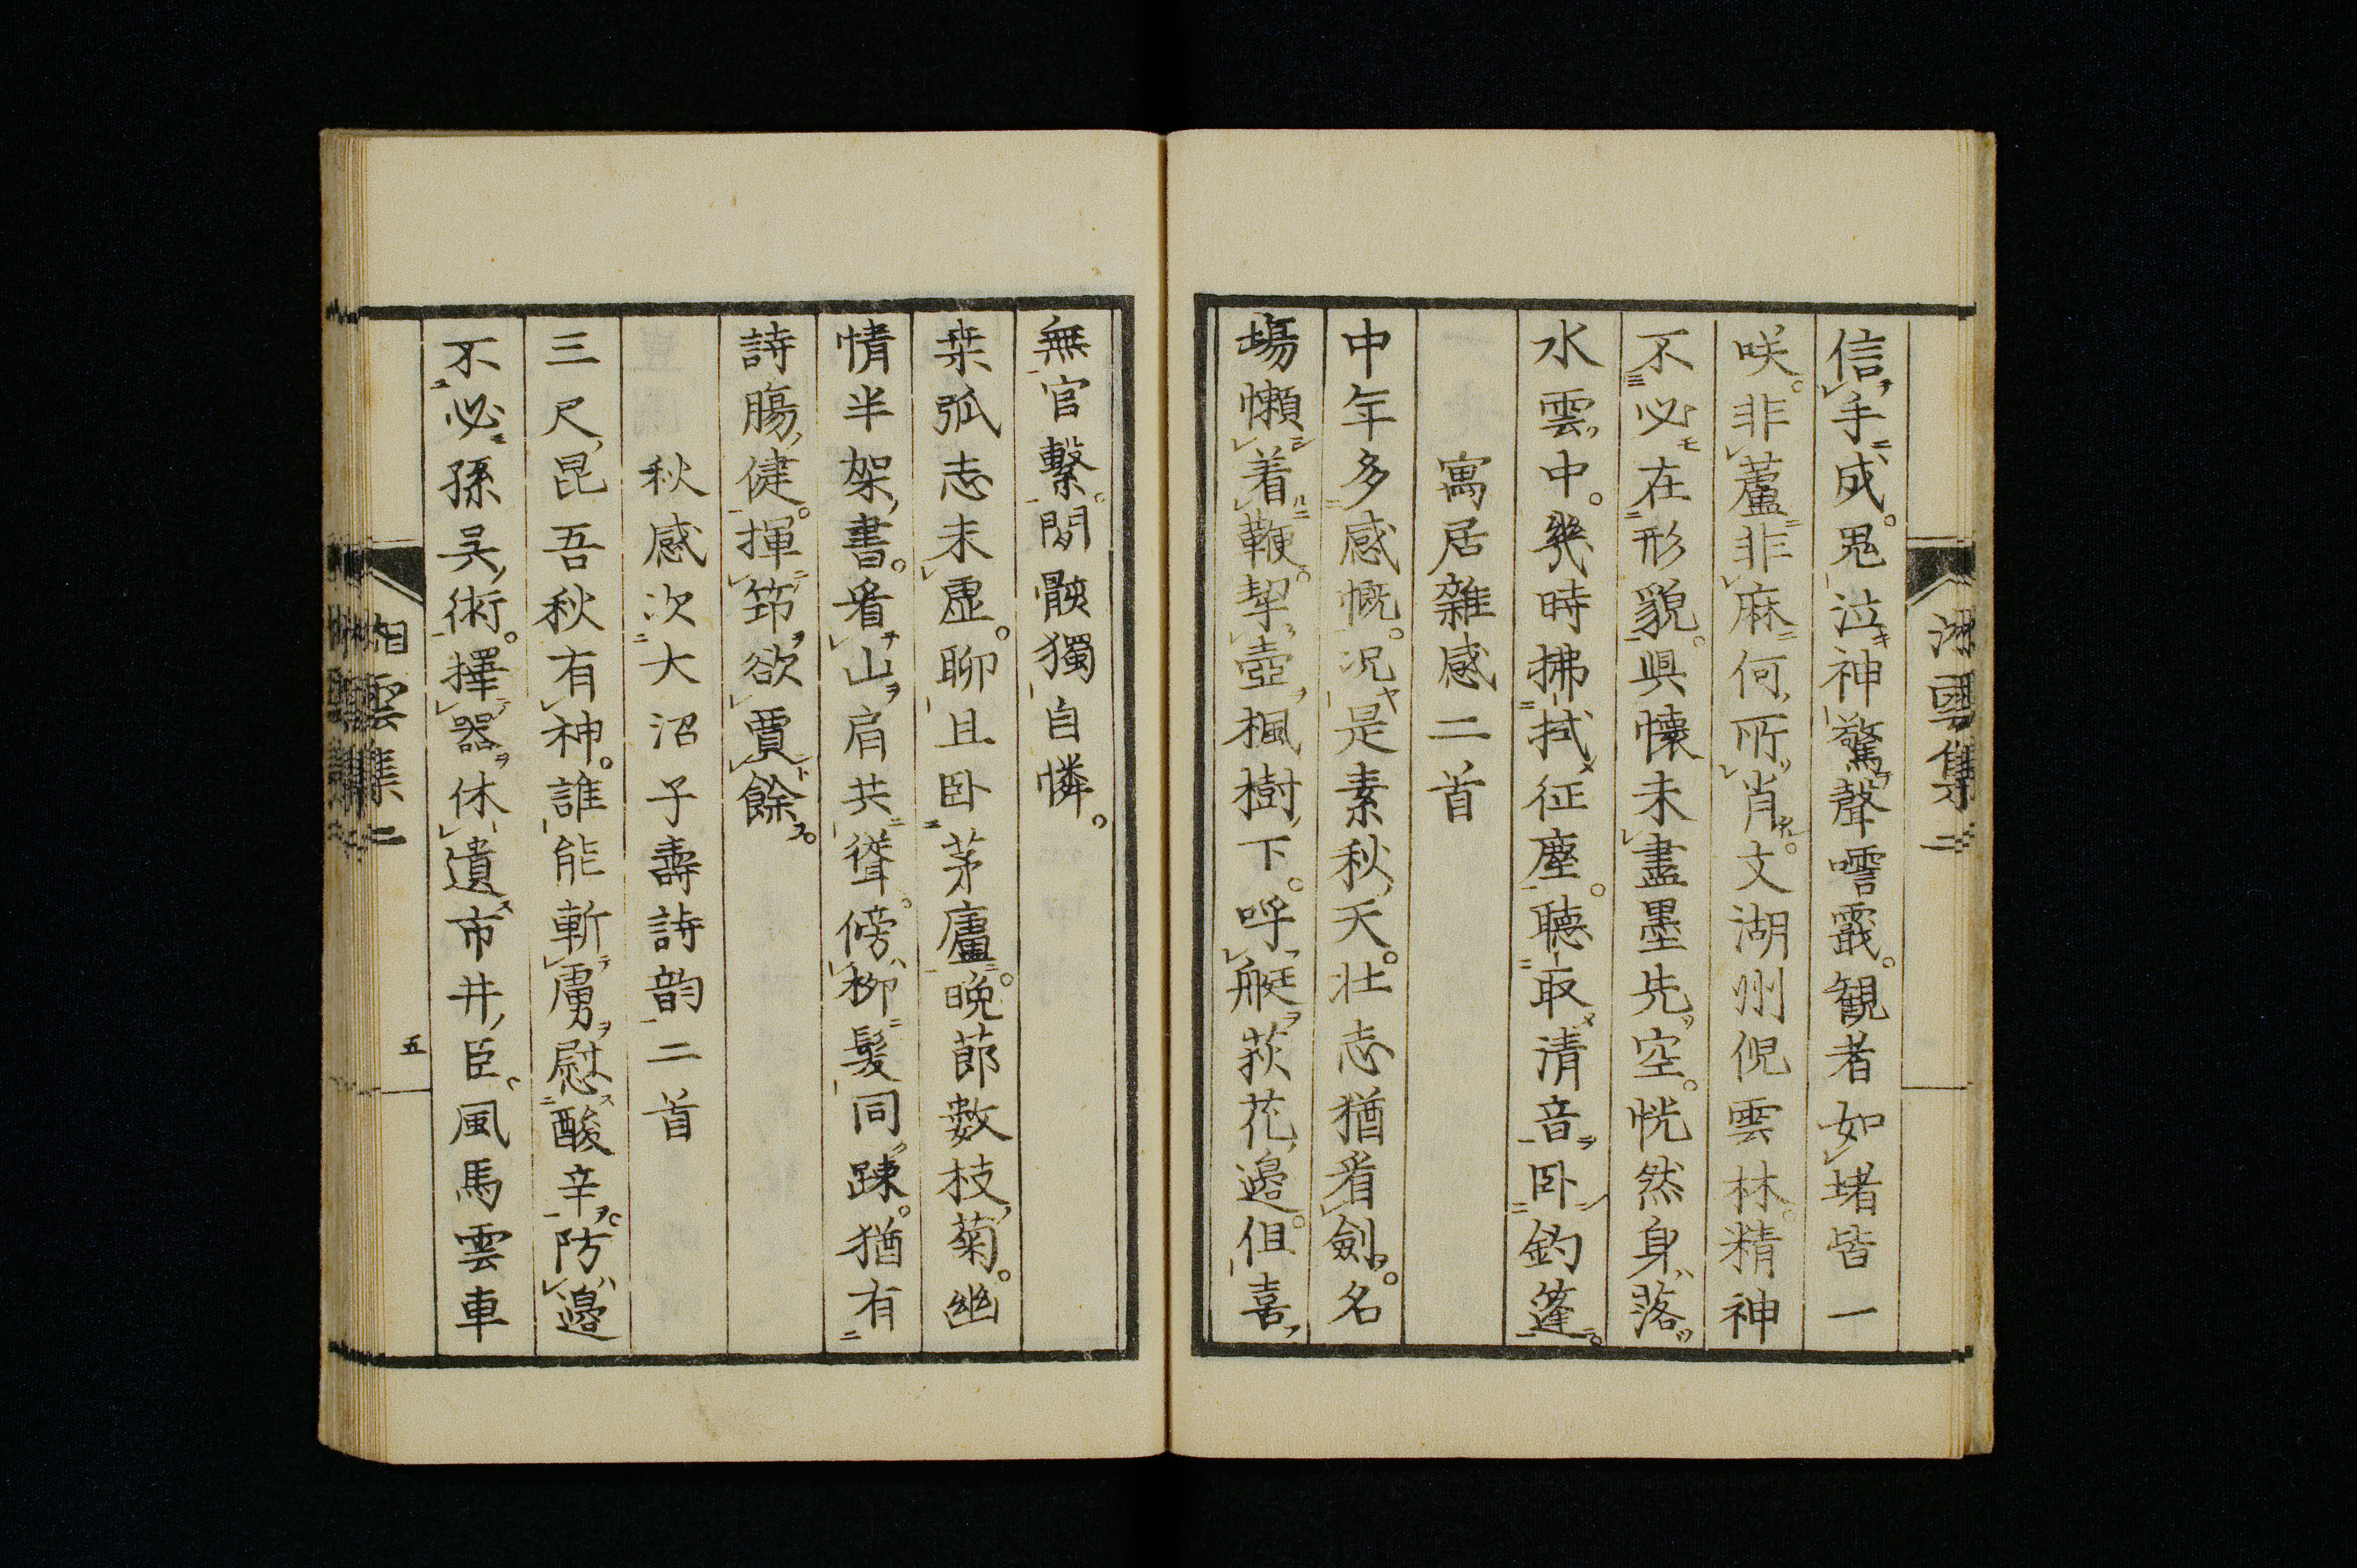 信手成。鬼泣神驚聲嚄霰。観者如堵皆一
咲。非蘆非麻何所肖。文湖州倪雲林。精神
不必在形貌。興懐未盡墨先空。恍然身落
水雲中。幾時拂拭征塵。聴取清音臥釣篷。
寓居雜感二首
中年多感慨。况是素秋天。壮志猶看劍。名
場懶着鞭。挈壺楓樹下。呼艇荻花邉。但喜
無官繋。間骸獨自憐。
桒弧志未虚。聊且臥茅廬。晩莭數枝菊。幽
情半架書。看山肩共聳。傍柳髪同踈。猶有
詩膓健。揮筇欲賈餘。
秋感次大沼子壽詩韵二首
三尺昆吾秋有神。誰能斬虜慰酸辛。防邉
不必孫吴術。擇器休遺市井臣。風馬雲車
五